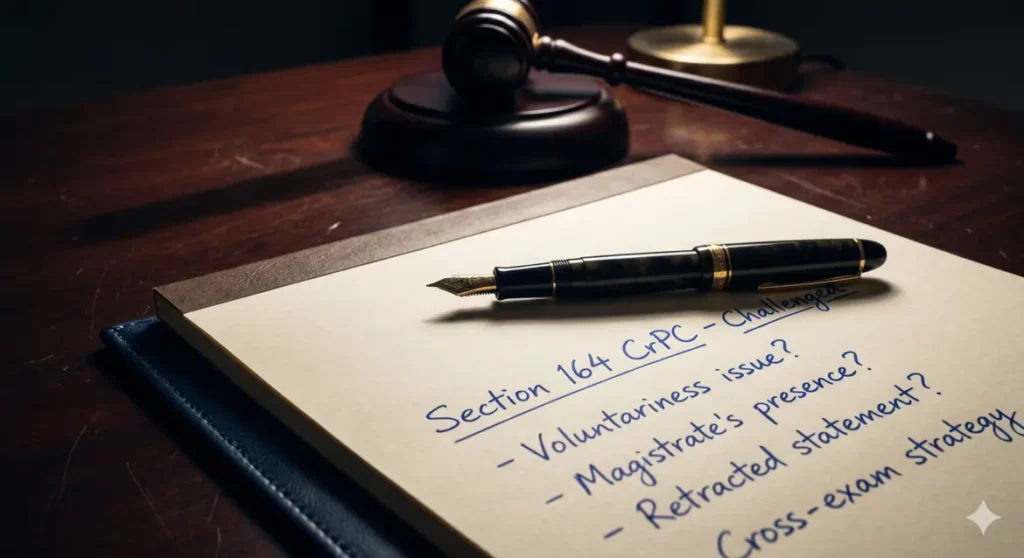 Section 164 CrPC - Challenged
- Voluntariness issue?
- Magistrate's presence?
- Retracted statement?
Cross-exam strategy